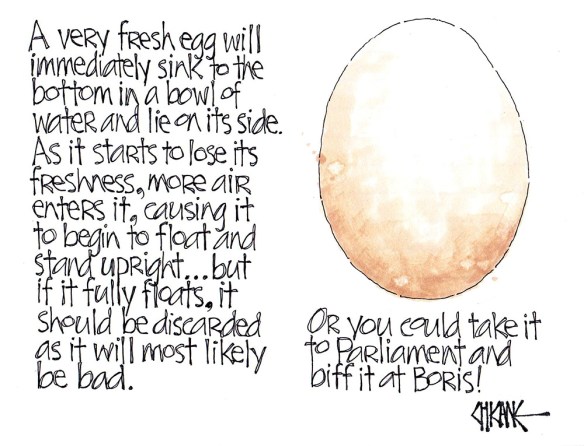 A very fresh egg will
immediately sink to the
bottom in a bowl of
water and lie on its side.
As it starts to lose its
freshness, more air
enters it, causing it
to begin to float and
stand upright...but
if it fully floats, it
should be discarded
as it will most likely
be bad.
Or you could take it
to Parliament and
biff it at Boris!
CHICANE